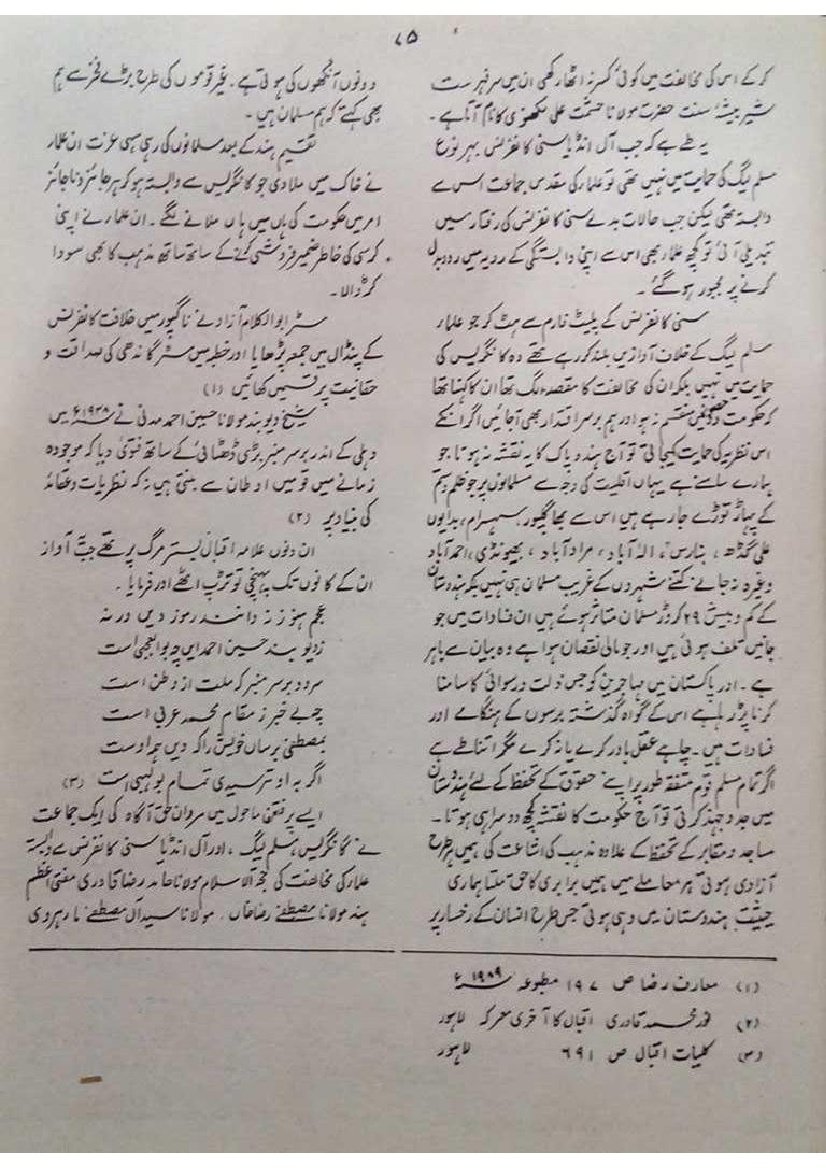 ۷۵
کر کے اس کی مخالفت میں کوئی کسر نہ اٹھا رکھی ان میں سر فہرست
شیر بیشۂ سنت حضرت مولانا حشمت علی لکھنوی کا نام آتا ہے۔
یہ طے ہے کہ جب آل انڈیا سنی کانفرنس بہر نوع
مسلم لیگ کی حمایت میں نہیں تھی تو علمار کی مقدس جماعت اس سے
وابستہ تھی لیکن جب حالات بدلے سنی کانفرنس کی رفتار میں
تبدیلی آئی تو کچھ علمار بھی اس سے اپنی وابستگی کے رویہ میں ردوبدل
کرنے پر مجبور ہو گئے۔
سنی کانفرنس کے پلیٹ فارم سے ہٹ کر جو علمار
مسلم لیگ کے خلاف آوازیں بلند کر رہے تھے وہ کانگریس کی
حمایت میں نہیں بلکہ ان کی مخالفت کا مقصد الگ تھا ان کا کہنا تھا
کہ حکومت منقسم نہ ہو اور ہم برسر اقتدار بھی آجائیں اگر انکے
اس نظریہ کی حمایت کیجاتی تو آج ہند و پاک کا یہ نقشہ نہ ہوتا جو
ہمارے سامنے ہے یہاں اقلیت کی وجہ سے مسلمانوں پر جو ظلم و ستم
کے پہاڑ توڑے جا رہے ہیں اس سے بھاگلپور، سہسرام، بدایوں
علی گڈھ، بنارس، الٰہ آباد، مراد آباد، بھیونڈی، احمد آباد
وغیرہ نہ جانے کتنے شہروں کے غریب مسلمان ہی نہیں بلکہ ہندوستان
کے کم و بیش ۲۹ کروڑ مسلمان متاثر ہوئے ہیں ان فسادات میں جو
جانیں تلف ہوئی ہیں اور جو مالی نقصان ہوا ہے وہ بیان سے باہر
ہے۔ اور پاکستان میں مہاجرین کو جس ذلت و رسوائی کا سامنا
کرنا پڑ رہا ہے اس کے گواہ گذشتہ برسوں کے ہنگامے اور
فسادات ہیں۔ چاہے عقل باور کرے یا نہ کرے مگر اتنا طے ہے
اگر تمام مسلم قوم متفقہ طور پر اپنے حقوق کے تحفظ کے لئے ہندوستان
میں جد و جہد کرتی تو آج حکومت کا نقشہ کچھ دوسرا ہی ہوتا۔
مساجد و مقابر کے تحفظ کے علاوہ مذہب کی اشاعت کی ہمیں ہر طرح
آزادی ہوتی ہر معاملے میں ہمیں برابری کا حق ملتا ہماری
حیثیت ہندوستان میں وہی ہوتی جس طرح انسان کے رخسار پر
دونوں آنکھوں کی ہوتی ہے۔ غیر قوموں کی طرح بڑے فخر سے ہم
بھی کہتے کہ ہم مسلمان ہیں۔
تقسیم ہند کے بعد مسلمانوں کی رہی سہی عزت ان علمار
نے خاک میں ملا دی جو کانگریس سے وابستہ ہو کر ہر جائز و ناجائز
امر میں حکومت کی ہاں میں ہاں ملانے لگے۔ ان علمار نے اپنی
کرسی کی خاطر ضمیر فروشی کرنے کے ساتھ ساتھ مذہب کا بھی سودا
کر ڈالا۔
مسٹر ابوالکلام آزاد نے ناگپور میں خلافت کانفرنس
کے پنڈال میں جمعہ پڑھایا اور خطبہ میں مسٹر گاندھی کی صداقت و
حقانیت پر قسمیں کھائیں (۱)
شیخ دیوبند مولانا حسین احمد مدنی نے ۱۹۳۸ء میں
دہلی کے اندر برسر منبر بڑی ڈھٹائی کے ساتھ فتویٰ دیا کہ موجودہ
زمانے میں قومیں اوطان سے بنتی ہیں نہ کہ نظریات و عقائد
کی بنیاد پر (۲)
ان دنوں علامہ اقبال بستر مرگ پر تھے جب آواز
ان کے کانوں تک پہنچی تو تڑپ اٹھے اور فرمایا۔
عجم ہنوز نہ دانند رموز دیں ورنہ
ز دیوبند حسین احمد ایں چہ بوالعجبی است
سرود برسر منبر کہ ملت از وطن است
چہ بے خبر ز مقام محمد عربی است
بمصطفیٰ برساں خویش را کہ دیں ہمہ اوست
اگر بہ او نہ رسیدی تمام بولہبی است (۳)
ایسے پر فتن ماحول میں مردان حق آگاہ کی ایک جماعت
نے کانگریس، مسلم لیگ، اور آل انڈیا سنی کانفرنس سے وابستہ
علمار کی مخالفت کی حجۃ الاسلام مولانا حامد رضا قادری مفتی اعظم
ہند مولانا مصطفےٰ رضا خاں، مولانا سید آل مصطفےٰ مارہروی
(۱) معارف رضا ص ۱۹۷ مطبوعہ ۱۹۸۹ء
(۲) نور محمد قادری اقبال کا آخری معرکہ لاہور
(۳) کلیات اقبال ص ۶۹۱ لاہور